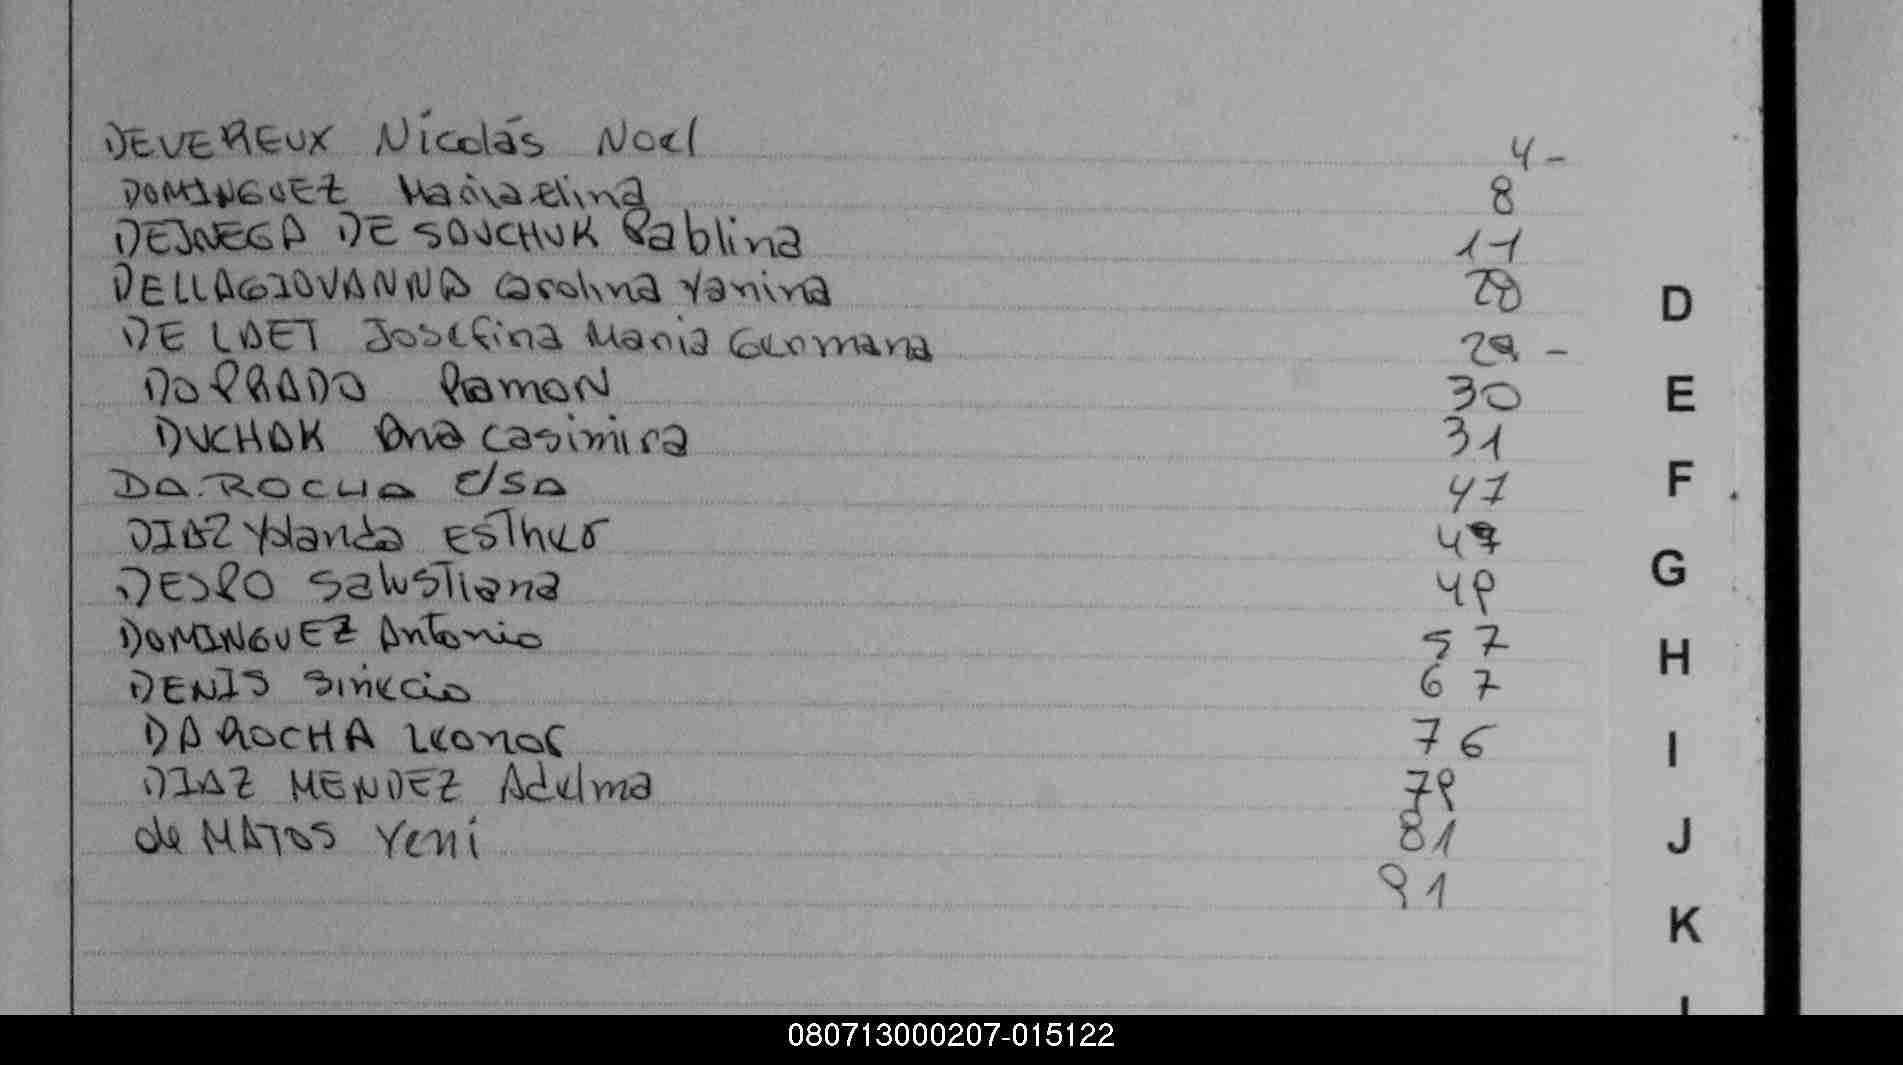 DEVEREUX Nicolás Noel 4-
DOMINGUEZ Maria elina 8
DEJNEGA DE SAUCHUK Pablina 11
DELLAGIOVANNA Carolina Yanina 28
DE LAET Josefina Maria Germana 29 -
DO PRADO Ramon 30
DUCHAK Ana Casimira 31
DA.ROCHA ElSA 47
DIAZ Yolanda ESTher 49
DESPO SaluSTiana 49
DOMINGUEZ Antonio 57
DENIS 67
DA ROCHA Leonor 76
DIAZ MENDEZ Adelma 79
de MATOS Yeni 81
91
D
E
F
G
H
I
J
K
080713000207-015122